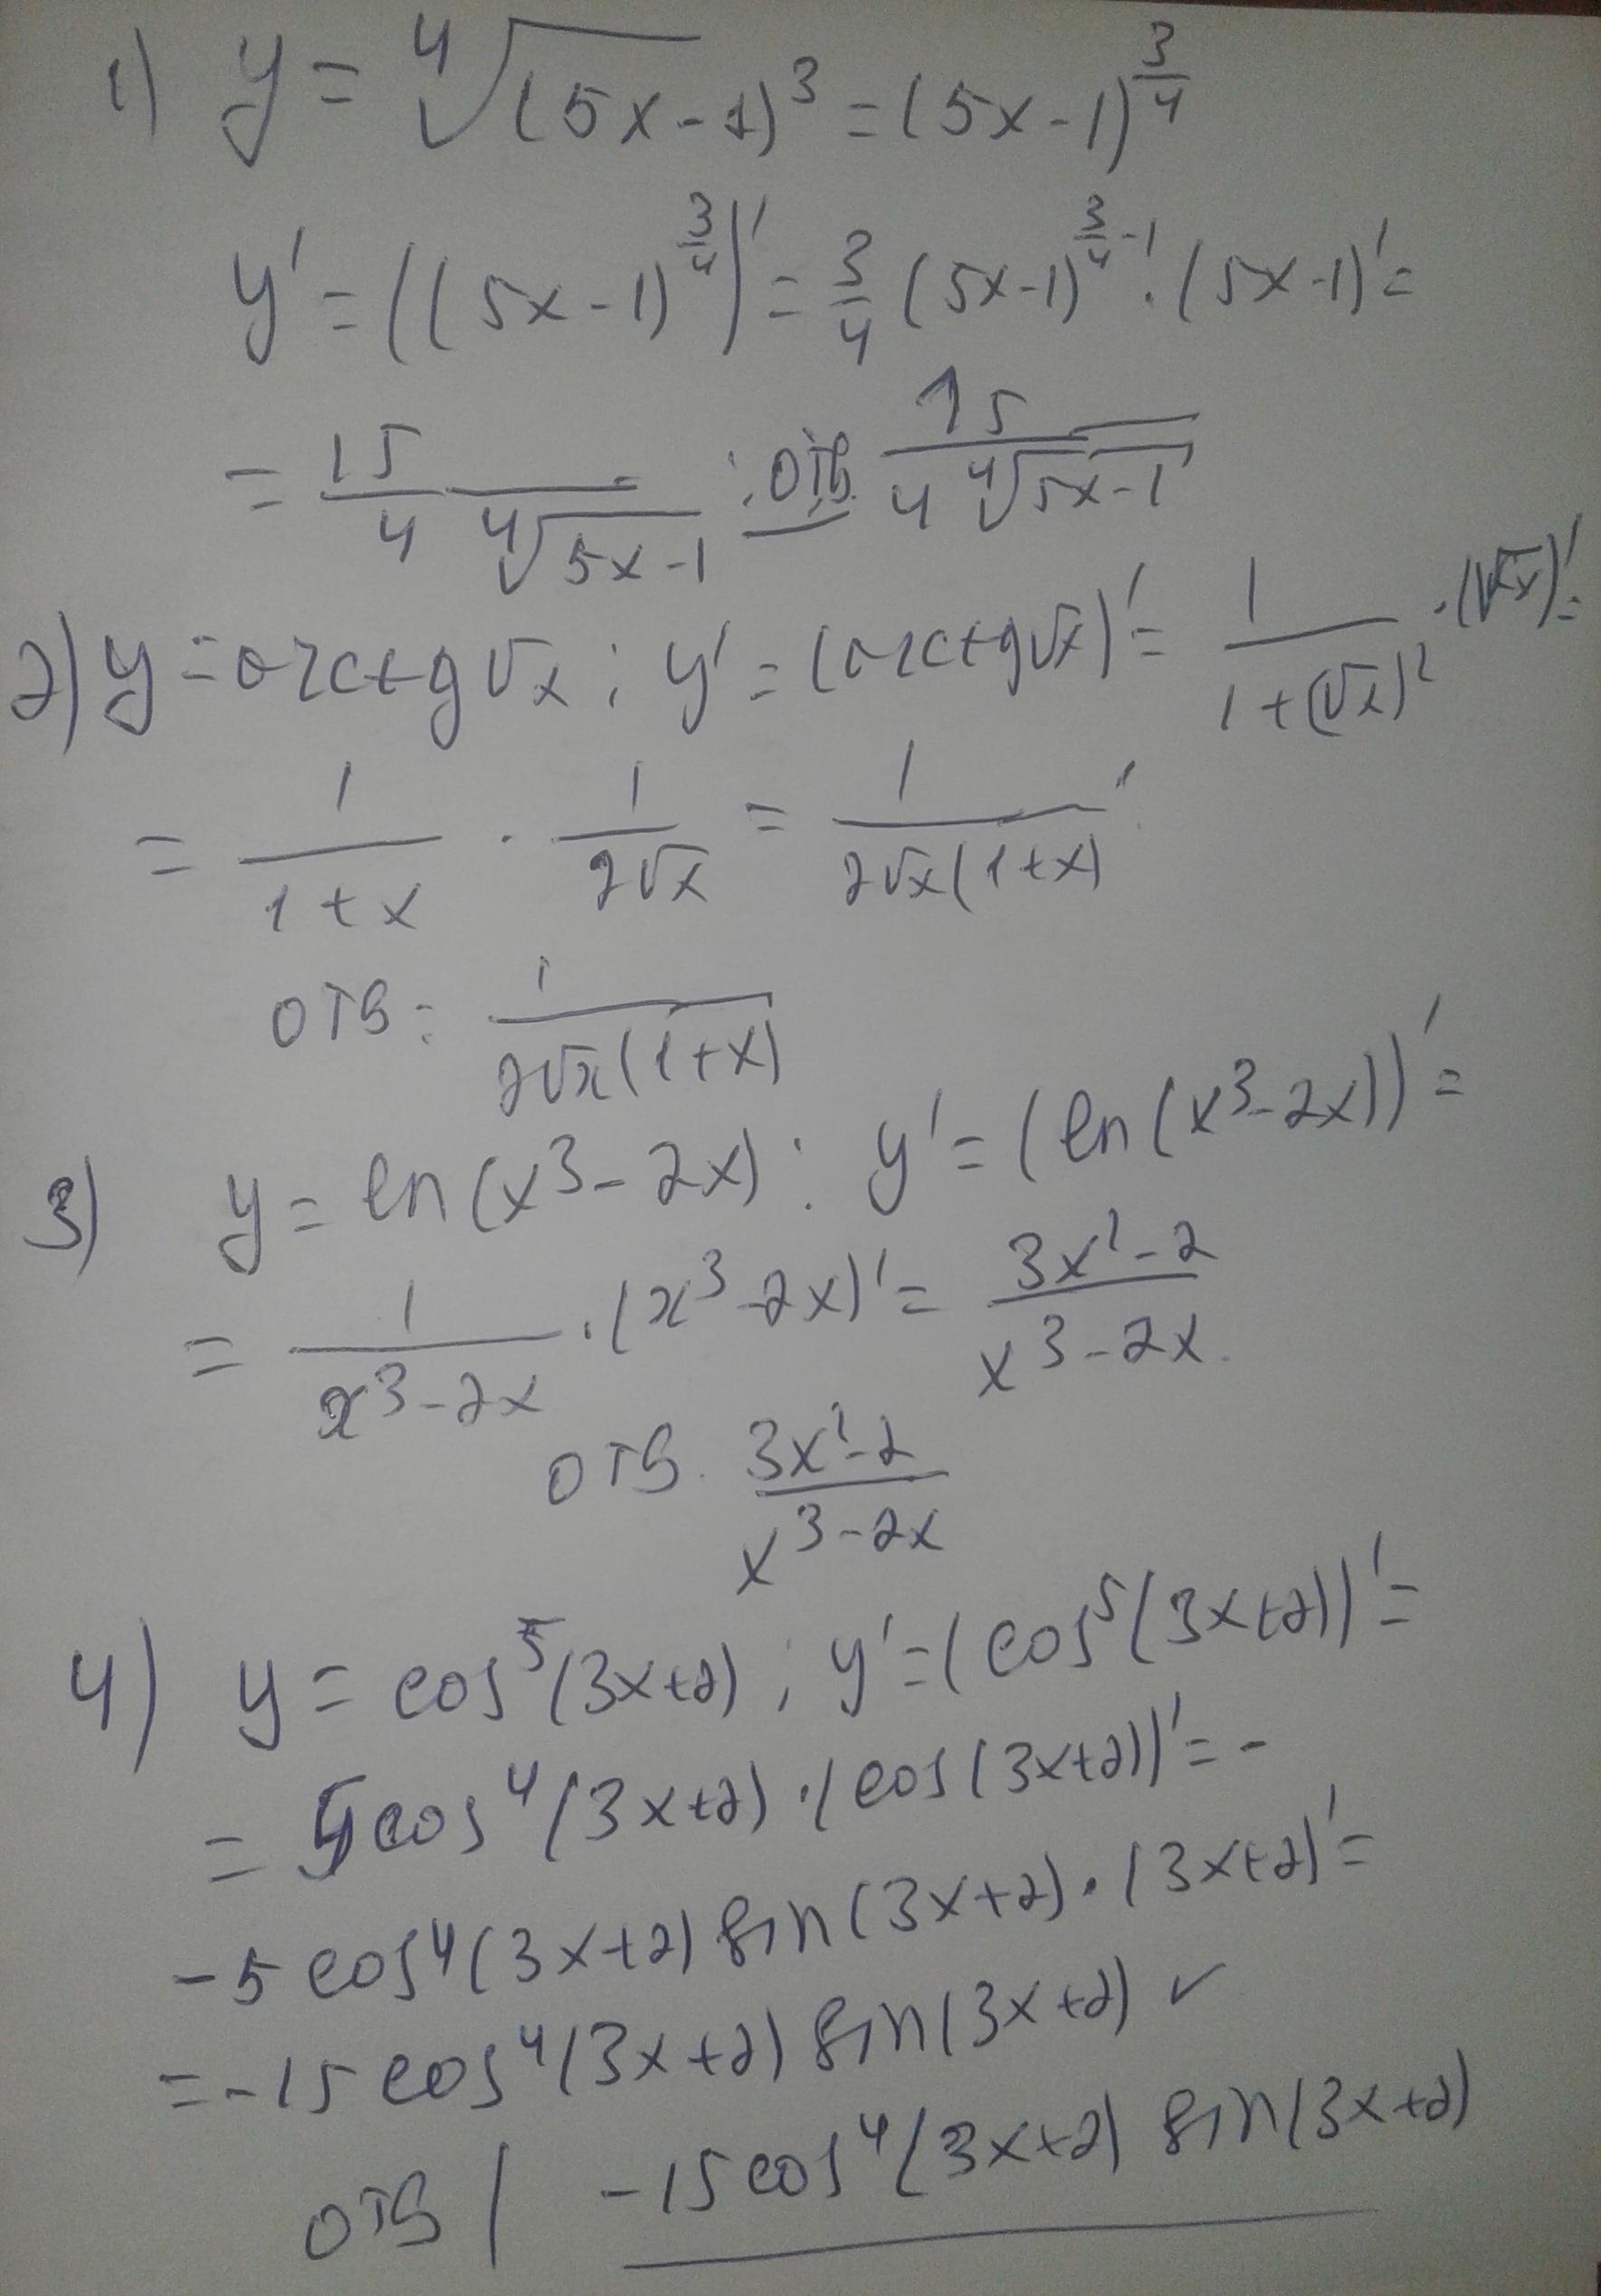 1) y = ⁴√(5x-1)³ = (5x-1)^(3/4)
y' = ((5x-1)^(3/4))' = 3/4 (5x-1)^(3/4-1) · (5x-1)' =
= 15/(4 ⁴√(5x-1)) ; отв. 15/(4 ⁴√(5x-1))
2) y = arctg√x ; y' = (arctg√x)' = 1/(1+(√x)²) · (√x)' =
= 1/(1+x) · 1/(2√x) = 1/(2√x(1+x))
отв: 1/(2√x(1+x))
3) y = ln(x³-2x) ; y' = (ln(x³-2x))' =
= 1/(x³-2x) · (x³-2x)' = (3x²-2)/(x³-2x).
отв. (3x²-2)/(x³-2x)
4) y = cos⁵(3x+2) ; y' = (cos⁵(3x+2))' =
= 5cos⁴(3x+2) · (cos(3x+2))' = -
-5 cos⁴(3x+2) sin(3x+2) · (3x+2)' =
= -15 cos⁴(3x+2) sin(3x+2) ✓
отв | -15cos⁴(3x+2) sin(3x+2)